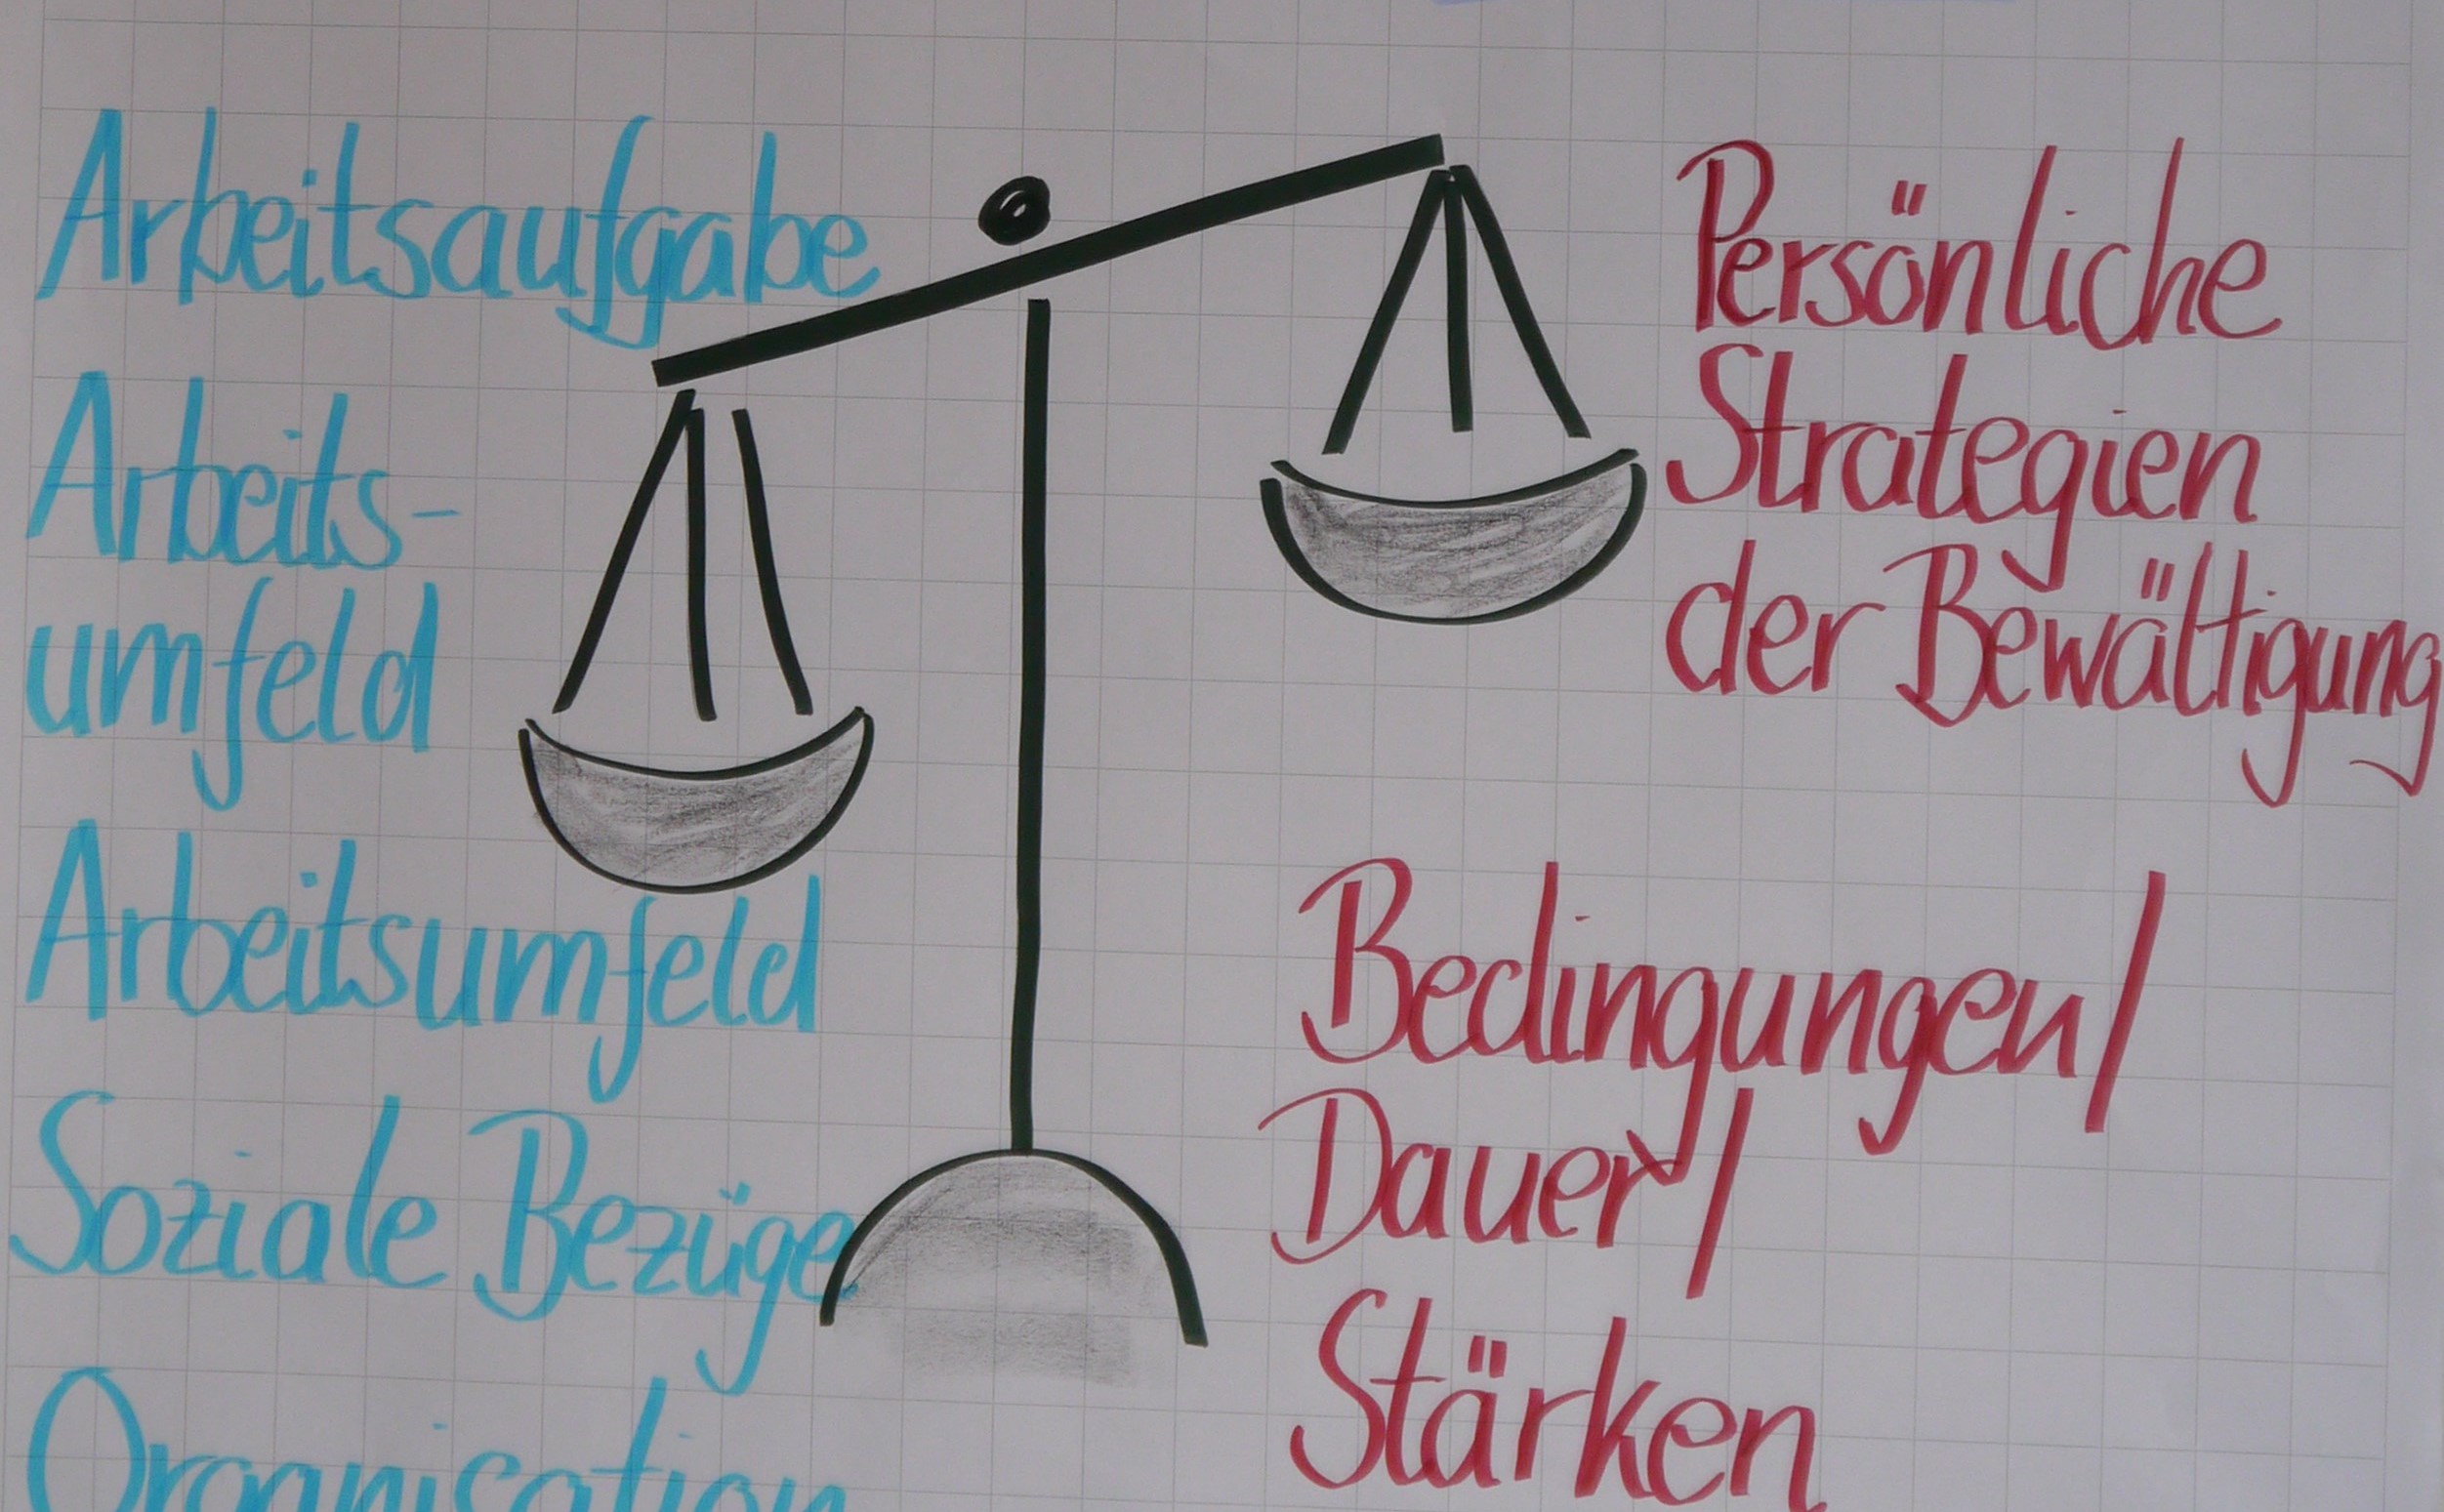 Arbeitsaufgabe
Arbeits-
umfeld
Arbeitsumfeld
Soziale Bezüge
Organisation
Persönliche
Strategien
der Bewältigung
Bedingungen/
Dauer/
Stärken